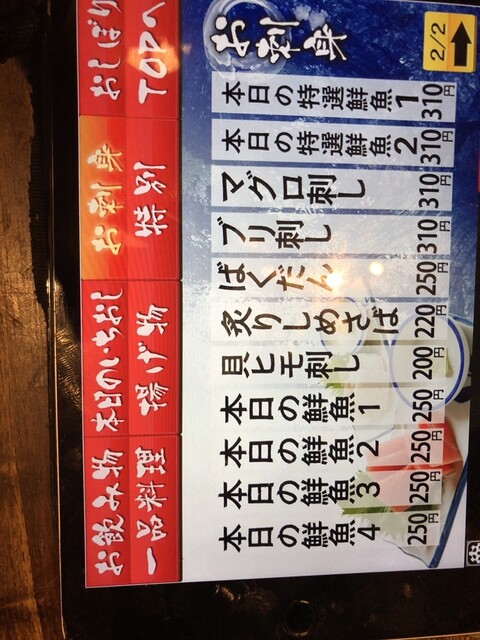 お飲み物
本日のいちおし
お刺身
おしぼり
一品料理
揚げ物
特別
TOPへ
お刺身
2/2
本日の特選鮮魚1
310円
本日の特選鮮魚2
310円
マグロ刺し
310円
ブリ刺し
310円
ばくだん
250円
炙りしめさば
220円
貝ヒモ刺し
200円
本日の鮮魚1
250円
本日の鮮魚2
250円
本日の鮮魚3
250円
本日の鮮魚4
250円